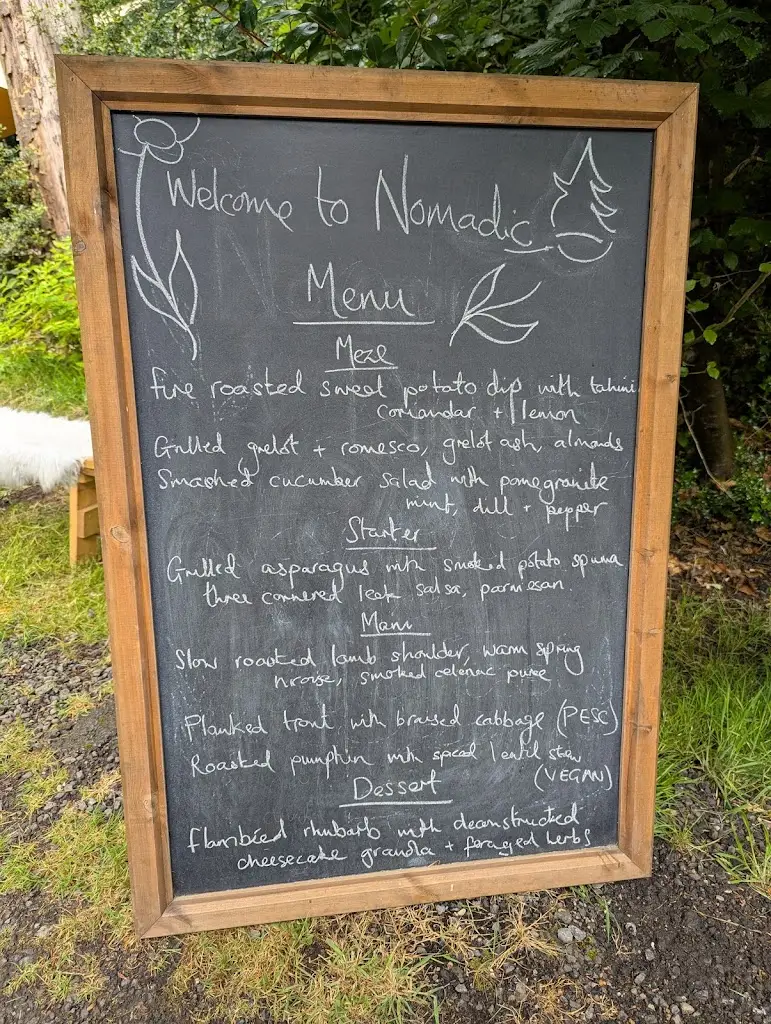 Welcome to Nomadic
Menu
Meze
Fire roasted sweet potato dip with tahini
coriandar + lemon
Grilled grelot + romesco, grelot ash, almonds
Smashed cucumber salad with pomegranite
mint, dill + pepper
Starter
Grilled asparagus with smoked potato spuma
three cornered leek salsa, parmesan.
Main
Slow roasted lamb shoulder, warm spring
smoked celeriac puree
Planked trout with braised cabbage (PESC)
Roasted pumpkin with spiced lentil stew
(VEGAN)
Dessert
flambéed rhubarb with deconstructed
cheesecake granola + foraged herbs